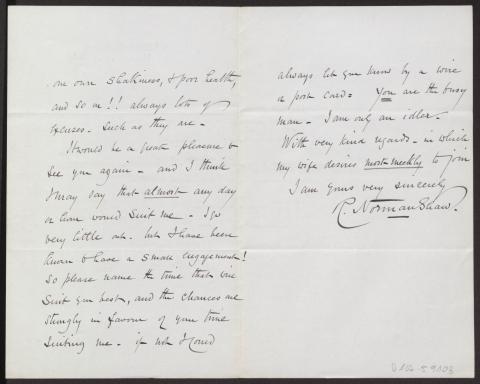 one own shakiness, & poor health,
and so on!! always lots of
excuses. such as they are -
It would be a great pleasure to
see you again - and I think
I may say that almost any day
or hour would suit me - I go
very little out. but I have been
known to have a small engagement!
So please name the time that will
suit you best, and the chances are
strongly in favour of your time
suiting me - if not I could
always let you know by a wire
or post card = You are the busy
man - I am only an idler -
With very kind regards - in which
my wife desires most meekly to join
I am yours very sincerely
R. Norman Shaw.